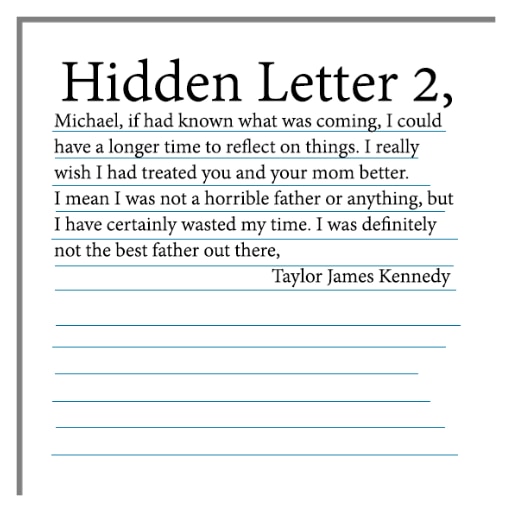 Hidden Letter 2,
Michael, if had known what was coming, I could
have a longer time to reflect on things. I really
wish I had treated you and your mom better.
I mean I was not a horrible father or anything, but
I have certainly wasted my time. I was definitely
not the best father out there,
Taylor James Kennedy